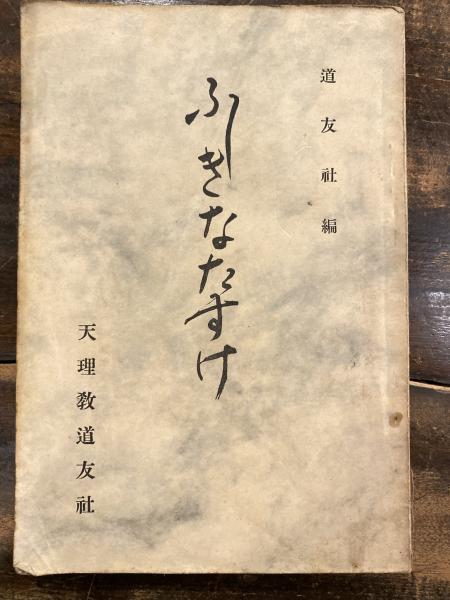 道友社編
ふしきなたすけ
天理教道友社